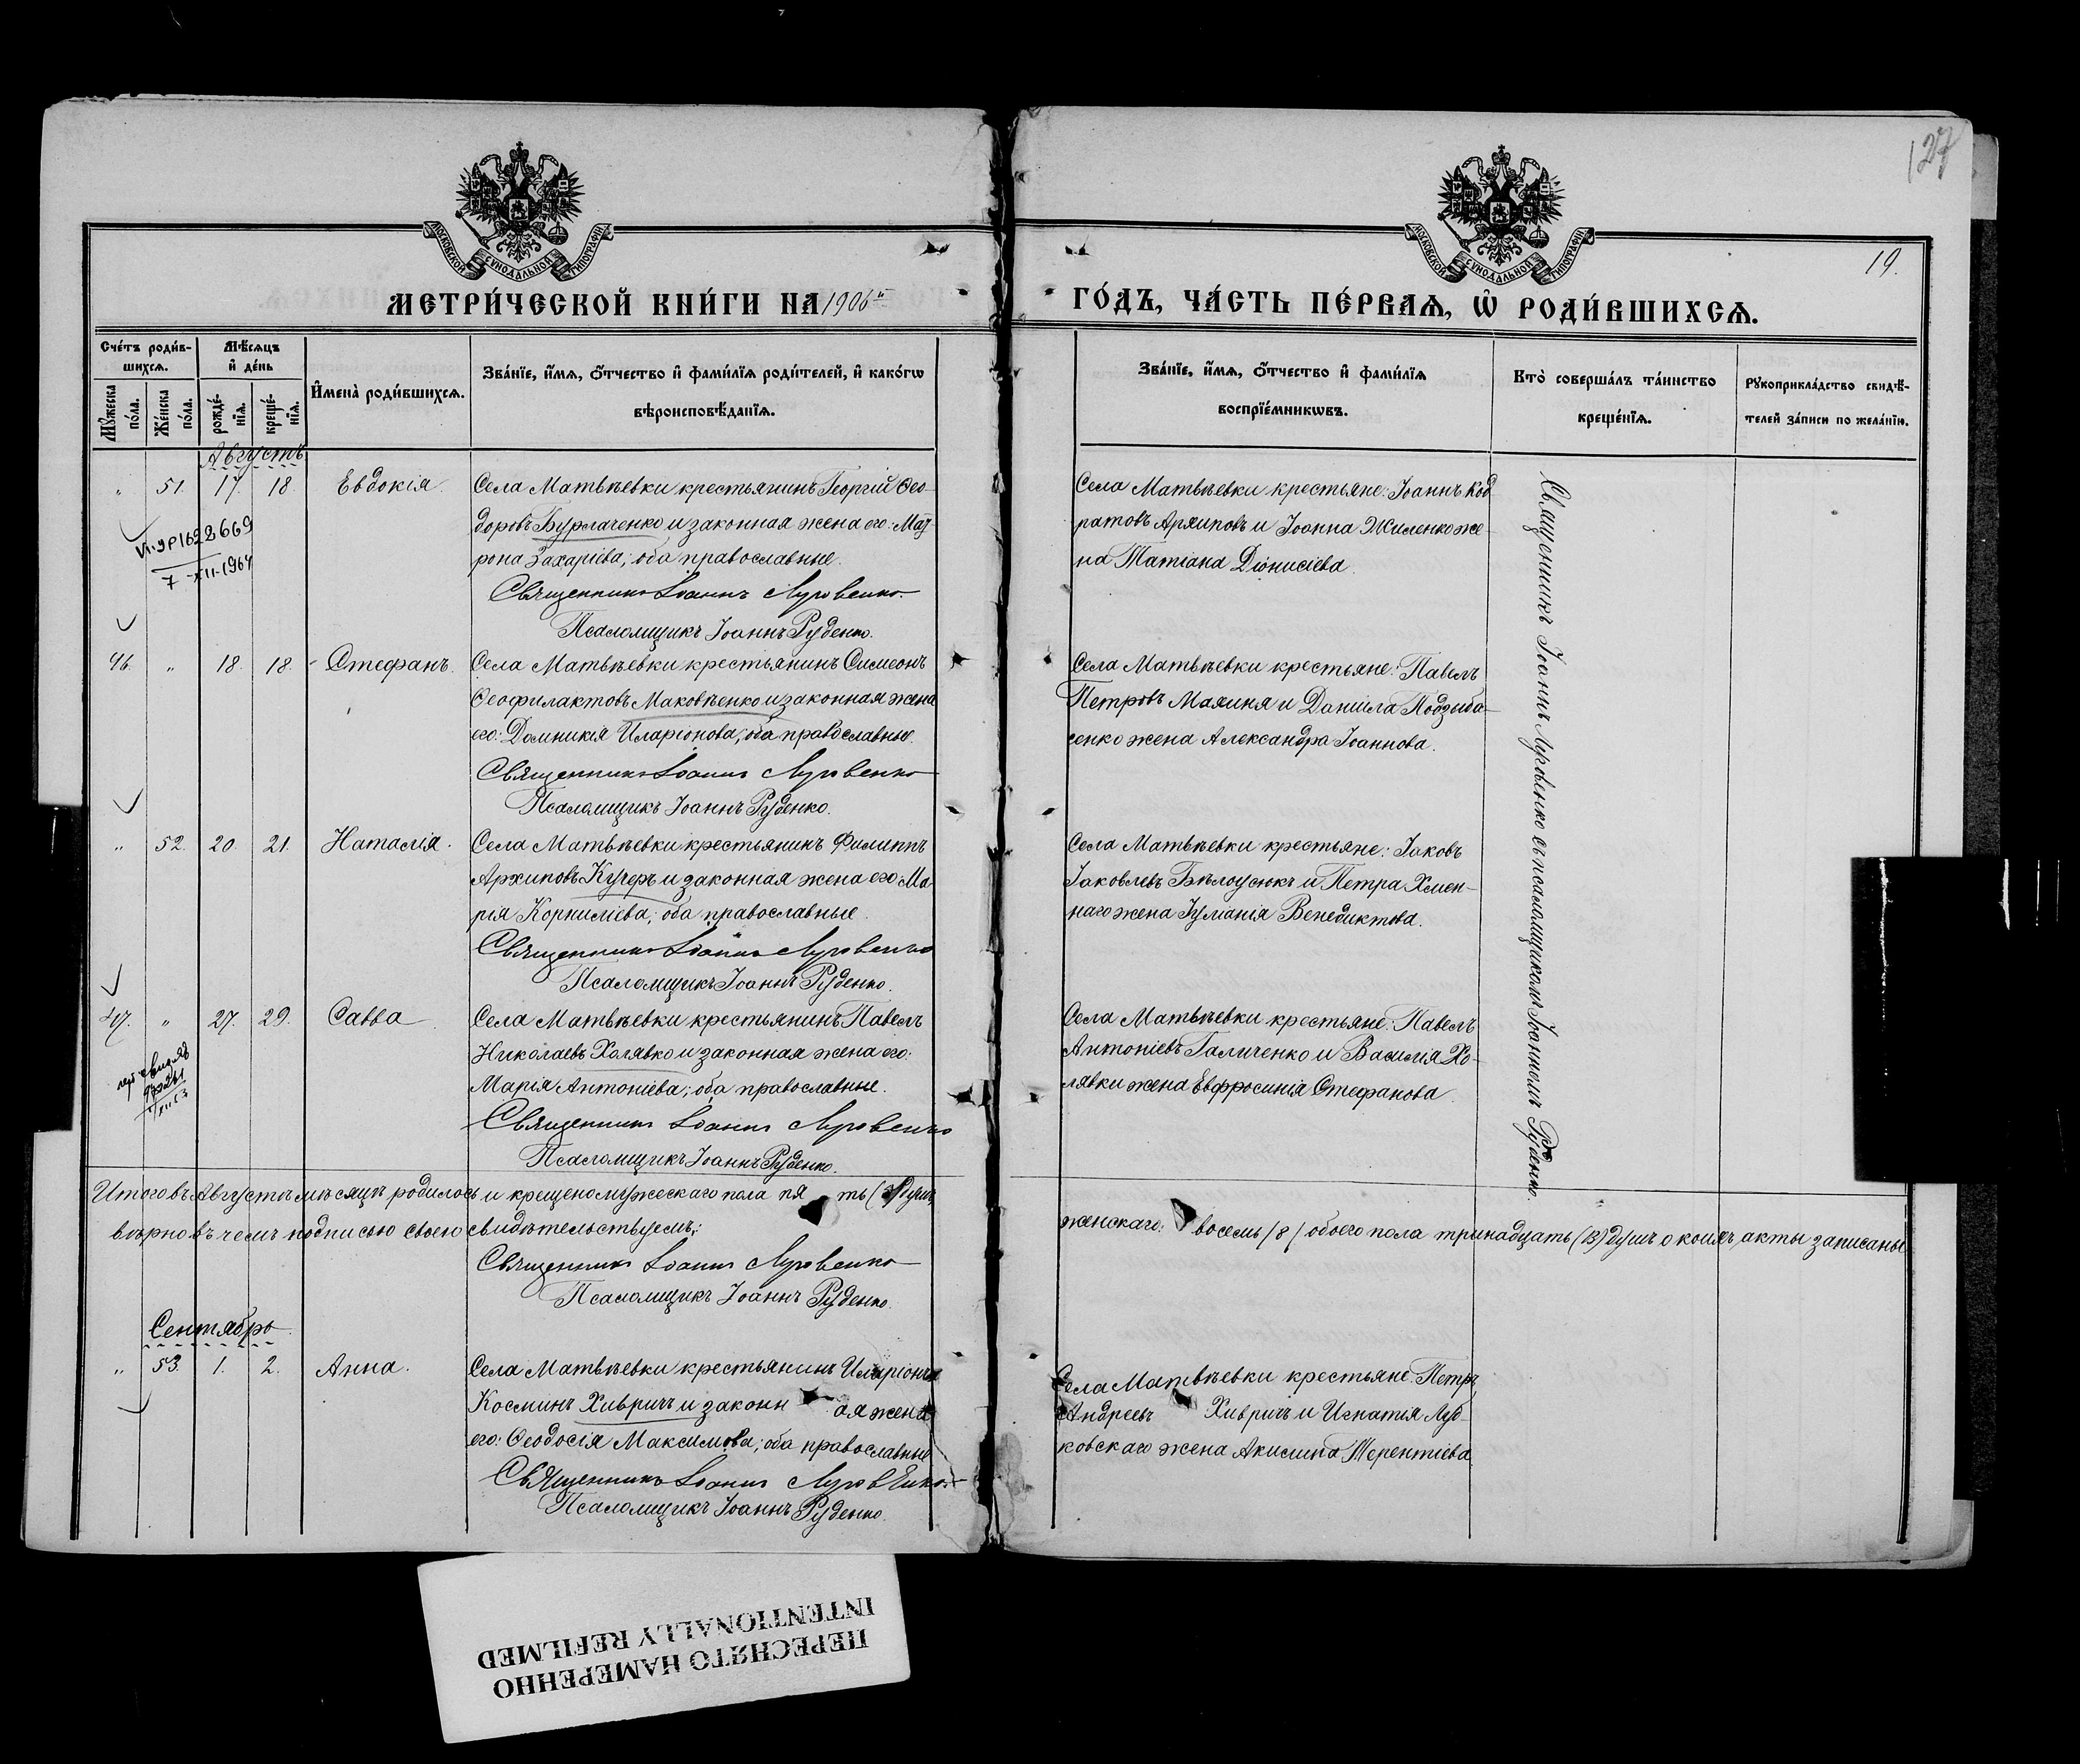 127
19.
МОСКОВСКОЙ СѴНОДАЛЬНОЙ ТИПОГРАФІИ
МОСКОВСКОЙ СѴНОДАЛЬНОЙ ТИПОГРАФІИ
МЕТРИ́ЧЕСКОЙ КНИ́ГИ НА 1906й
ГО́ДЪ, ЧА́СТЬ ПЕ́РВАѦ, Ѡ҆ РОДИ́ВШИХСѦ.
Сче́тъ роди́в-
шихсѧ.
Мꙋ́жеска по́ла.
Же́нска по́ла.
Мѣ́сѧцъ
и҆ де́нь
рожде́-
нїѧ.
креще́-
нїѧ.
И҆мена̀ роди́вшихсѧ.
Зва́нїе, и҆́мѧ, ѻ҆́тчество и҆ фами́лїѧ роди́телей, и҆ како́гѡ
вѣроисповѣ́данїѧ.
Зва́нїе, и҆́мѧ, ѻ҆́тчество и҆ фами́лїѧ
воспрїе́мникѡвъ.
Кто̀ соверша́лъ та́инство
креще́нїѧ.
Рꙋкоприкла́дство свидѣ́-
телей за́писи по жела́нїю.
Августъ
„ 51. 17. 18. Евдокія.
Села Матвѣевки крестьянинъ Георгій Ѳео-
доровъ Бурлаченко и законная жена его: Мат-
рона Захаріева; оба православные.
Священникъ Іоаннъ Луговенко.
Псаломщикъ Іоаннъ Руденко.
Села Матвѣевки крестьяне: Іоаннъ Код
ратовъ Архиповъ и Іоанна Жиленко же-
на Татіана Діонисіева.
1628669
7-XII-1964
46. „ 18. 18. Стефанъ.
Села Матвѣевки крестьянинъ Симеонъ
Ѳеофилактовъ Маковѣенко и законная жена
его: Домникія Иларіонова; оба православные.
Священникъ Іоаннъ Луговенко
Псаломщикъ Іоаннъ Руденко.
Села Матвѣевки крестьяне: Павелъ
Петровъ Махиня и Даніила Подзиба-
сенко жена Александра Іоаннова.
„ 52. 20. 21. Наталія.
Села Матвѣевки крестьянинъ Филиппъ
Архиповъ Кучеръ и законная жена его: Ма-
рія Корниліева; оба православные.
Священникъ Іоаннъ Луговенко
Псаломщикъ Іоаннъ Руденко.
Села Матвѣевки крестьяне: Іаковъ
Іаковлевъ Бѣлоусюкъ и Петра Хмен-
наго жена Іуліанія Венедиктова.
47. „ 27. 29. Савва
Села Матвѣевки крестьянинъ Павелъ
Николаевъ Холявко и законная жена его:
Марія Антоніева; оба православные.
Священникъ Іоаннъ Луговенко
Псаломщикъ Іоаннъ Руденко.
Села Матвѣевки крестьяне: Павелъ
Антоніевъ Галиченко и Василія Хо-
лявки жена Евфросинія Стефанова.
Священникъ Іоаннъ Луговенко съ псаломщикомъ Іоанномъ Руденко.
Итого въ Августѣ мѣсяцѣ родилось и крещено мужескаго пола пя ть (5) душъ,
женскаго: восемь /8/ обоего пола тринадцать (13) душъ о коихъ акты записаны
вѣрно въ чемъ подписью своею свидѣтельствуемъ:
Священникъ Іоаннъ Луговенко
Псаломщикъ Іоаннъ Руденко.
Сентябрь
„ 53. 1. 2. Анна.
Села Матвѣевки крестьянинъ Иларіонъ
Косминъ Хивричъ и законн ая жена
его: Ѳеодосія Максимова; оба православные
Священникъ Іоаннъ Луговенко.
Псаломщикъ Іоаннъ Руденко.
Села Матвѣевки крестьяне: Петръ
Андреевъ Хивричъ и Игнатія Лу-
ковскаго жена Акилина Терентіева.
ПЕРЕСНЯТО НАМЕРЕННО
INTENTIONALLY REFILMED